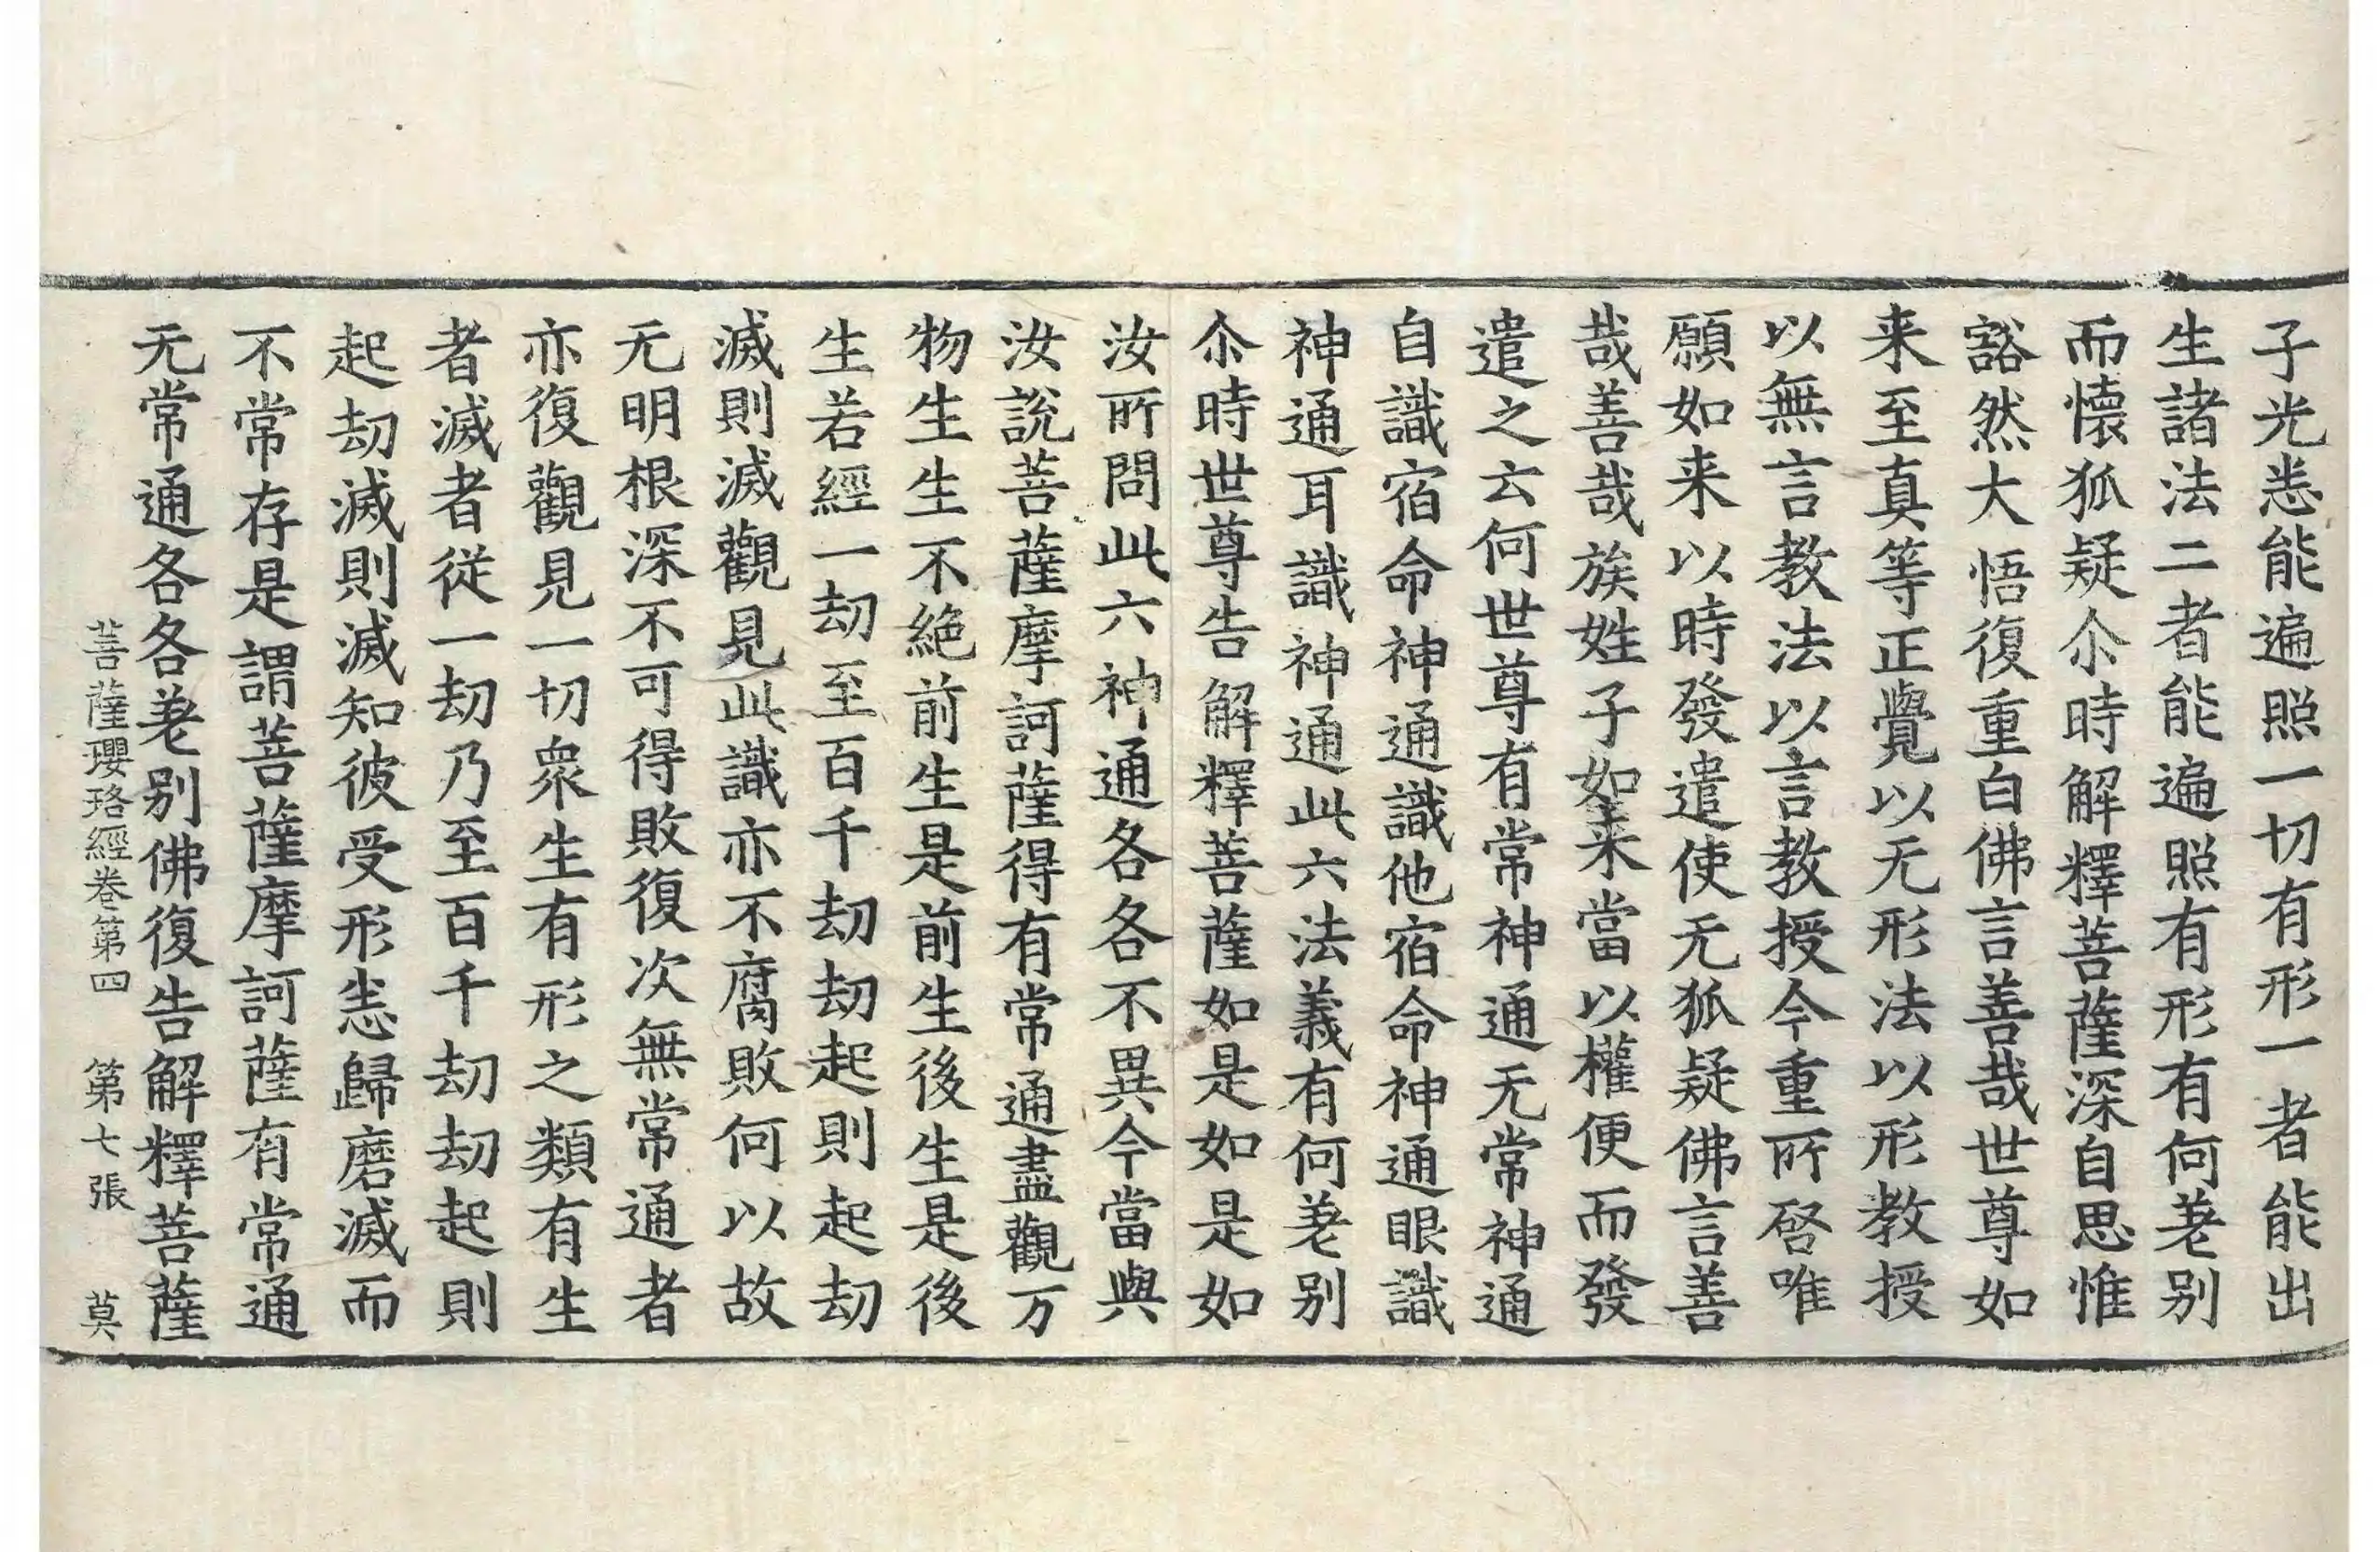 子光悉能遍照一切有形一者能出
生諸法二者能遍照有形有何差别
而懷狐疑尒時解釋菩薩深自思惟
豁然大悟復重白佛言善哉世尊如
来至真等正覺以无形法以形教授
以無言教法以言教授今重所啓唯
願如来以時發遣使无狐疑佛言善
哉善哉族姓子如来當以權便而發
遣之云何世尊有常神通无常神通
自識宿命神通識他宿命神通眼識
神通耳識神通此六法義有何差别
尒時世尊告解釋菩薩如是如是如
汝所問此六神通各各不異今當與
汝說菩薩摩訶薩得有常通盡觀万
物生生不絶前生是前生後生是後
生若經一劫至百千劫劫起則起劫
滅則滅觀見此識亦不腐敗何以故
无明根深不可得敗復次無常通者
亦復觀見一切衆生有形之類有生
者滅者從一劫乃至百千劫劫起則
起劫滅則滅知彼受形悉歸磨滅而
不常存是謂菩薩摩訶薩有常通
无常通各各差别佛復告解釋菩薩
菩薩瓔珞經卷第四 第七張 莫